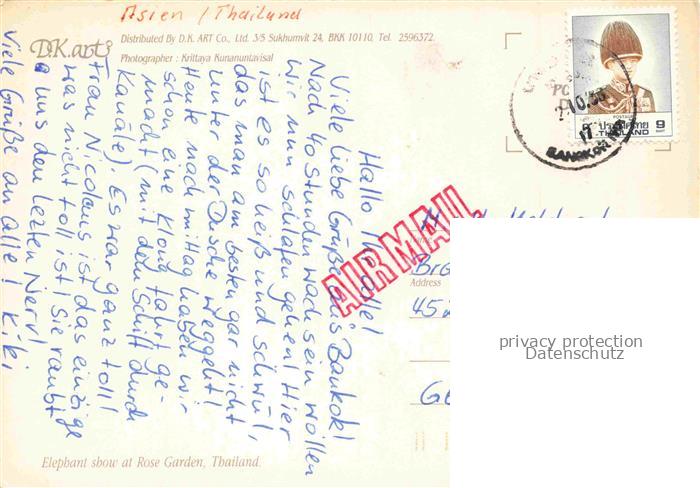 Asien / Thailand
D.K.arts
Distributed By D.K. ART Co., Ltd. 3/5 Sukhumvit 24, BKK 10110, Tel. 2596372.
Photographer : Krittaya Kunanuntavisal
Hallo Ihr alle!
Viele liebe Grüße aus Bankok!
Nach 40 stunden wach sein wollen
wir nun schlafen gehen! Hier
ist es so heiß und schwül,
das man am besten gar nicht
unter der Dusche weggeht!
Heute nach mittag haben wir
schon eine Klong fahrt ge-
macht (mit dem Schiff durch
Kanäle) Es war ganz toll!
Frau Nicolaus ist das einzige
was nicht toll ist! sie raubt
uns den lezten Nerv!
Viele Grüße an alle! Kiki
AIRMAIL
Address
45
Ge
POSTAGE
ประเทศไทย 9
THAILAND BAHT
BANGKOK
privacy protection
Datenschutz
Elephant show at Rose Garden, Thailand.